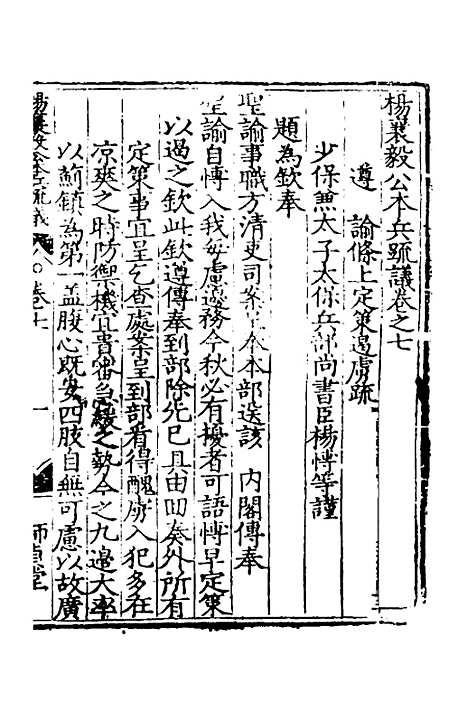 楊襄毅公本兵疏議卷之七
遵　諭條上定策邊虜疏
少保兼太子太保兵部尚書臣楊愽等謹
題為欽奉
聖諭事職方清吏司案呈奉本部送該　內閣傳奉
聖諭自愽入我每慮邊務今秋必有擾者可語愽早定策
以遏之欽此欽遵傳奉到部除先已具由回奏外所有
定策事宜呈乞查處案呈到部看得醜虜入犯多在
凉爽之時防禦機宜貴審急緩之勢今之九邊大率
以薊鎮為第一盖腹心既安四肢自無可慮以故廣
楊襄毅公本兵疏議
卷七
一
師貞堂